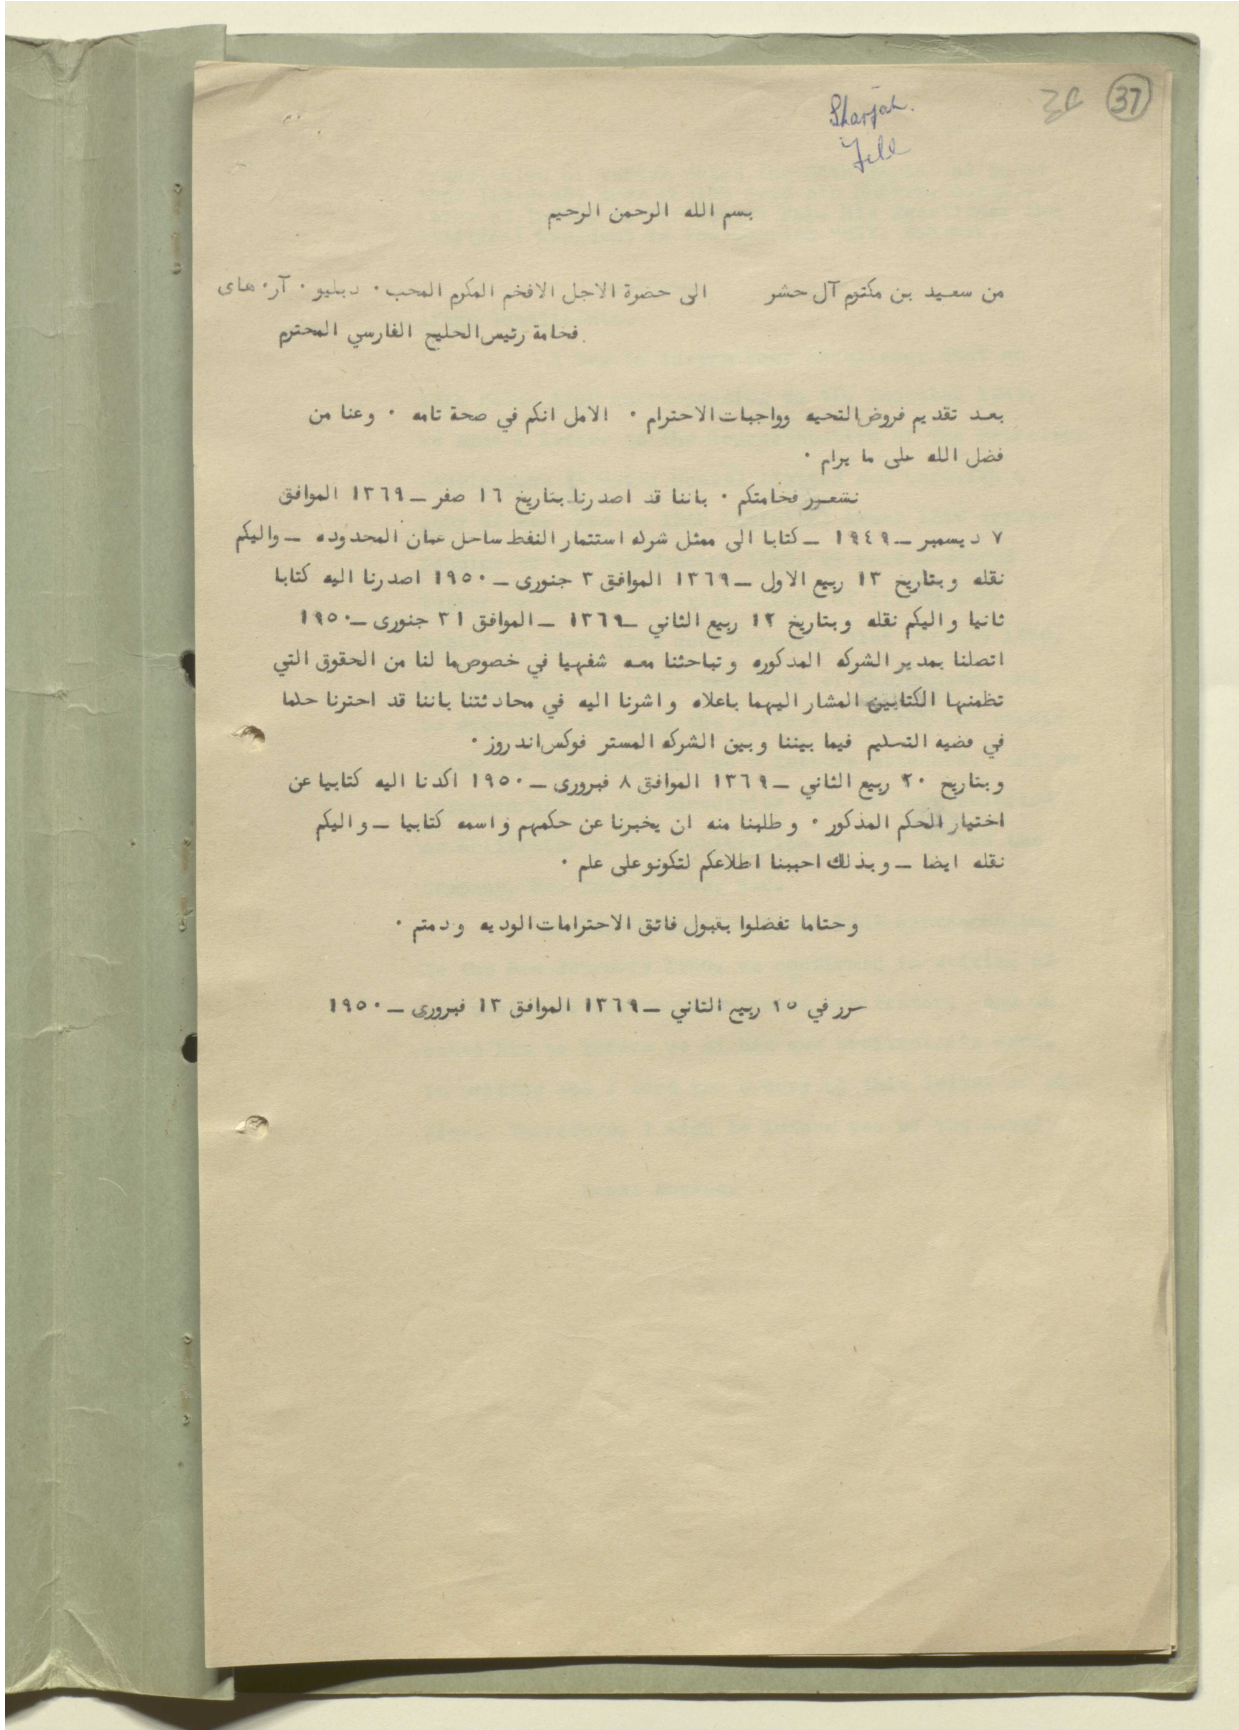 37
Sharjah.
File
بسم الله الرحمن الرحيم
من سعيد بن مكتوم آل حشر الى حضرة الاجل الافخم المكرم المحب ٠ دبليو ٠ آر ٠ هاى
فخامة رئيس الخليج الفارسي المحترم
بعد تقديم فروض التحيه وواجبات الاحترام ٠ الامل انكم في صحة تامه ٠ وعنا من
فضل الله على ما يرام ٠
نشعر فخامتكم ٠ باننا قد اصدرنا بتاريخ ١٦ صفر ــ ١٣٦٩ الموافق
٧ ديسمبر ــ ١٩٤٩ ــ كتابا الى ممثل شركه استثمار النفط ساحل عمان المحدوده ــ واليكم
نقله وبتاريخ ١٣ ربيع الاول ــ ١٣٦٩ الموافق ٣ جنورى ــ ١٩٥٠ اصدرنا اليه كتابا
ثانيا واليكم نقله وبتاريخ ١٢ ربيع الثاني ــ ١٣٦٩ ــ الموافق ٣١ جنورى ــ ١٩٥٠
اتصلنا بمدير الشركه المذكوره وتباحثنا معه شفهيا في خصوص ما لنا من الحقوق التي
تظمنها الكتابين المشار اليهما باعلاه واشرنا اليه في محادثتنا باننا قد اخترنا حكما
في قضيه التسليم فيما بيننا وبين الشركه المستر فوكس اندروز ٠
وبتاريخ ٢٠ ربيع الثاني ــ ١٣٦٩ الموافق ٨ فبرورى ــ ١٩٥٠ اكدنا اليه كتابيا عن
اختيار الحكم المذكور ٠ وطلبنا منه ان يخبرنا عن حكمهم واسمه كتابيا ــ واليكم
نقله ايضا ــ وبذلك احببنا اطلاعكم لتكونو على علم ٠
وختاما تفضلوا بقبول فائق الاحترامات الوديه ودمتم ٠
حرر في ٢٥ ربيع الثاني ــ ١٣٦٩ الموافق ١٣ فبرورى ــ ١٩٥٠